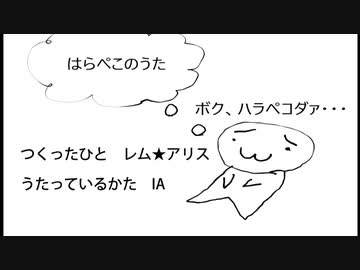 はらぺこのうた
ボク、ハラペコダァ・・・
つくったひと　レム★アリス
うたっているかた　IA